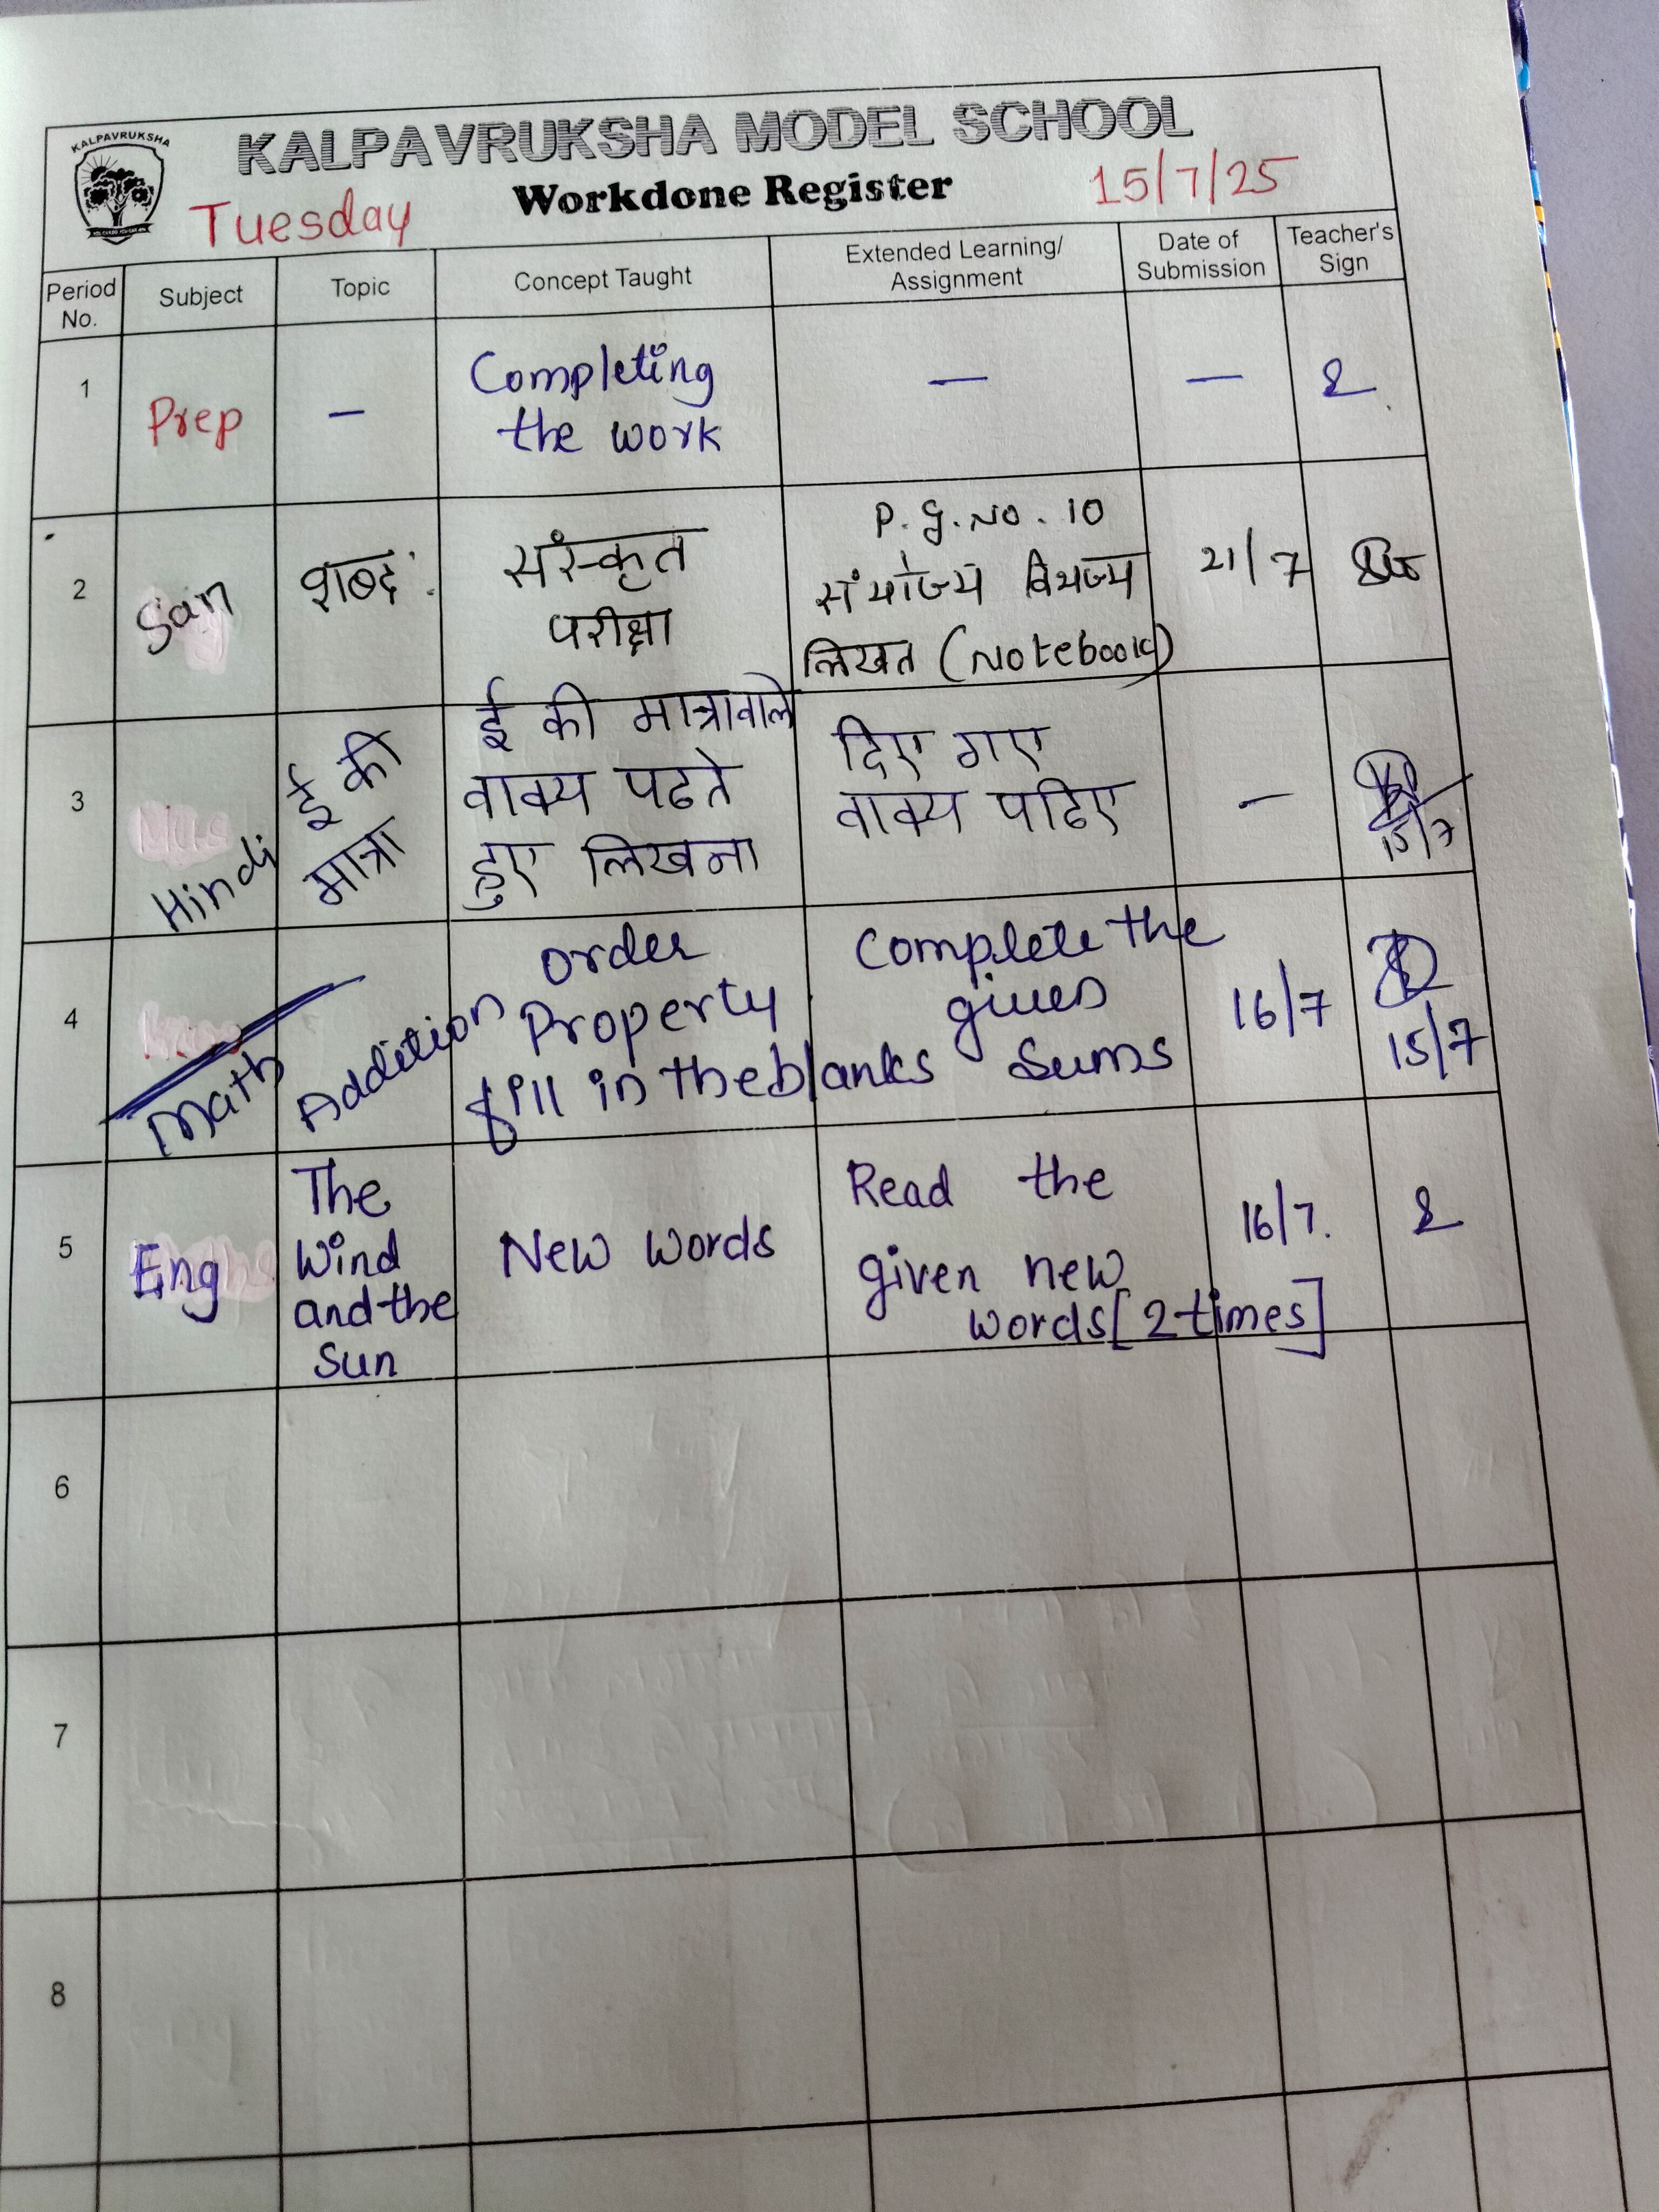 KALPAVRUKSHA
KALPAVRUKSHA MODEL SCHOOL
Tuesday
Workdone Register
15/7/25
Period No.
Subject
Topic
Concept Taught
Extended Learning/ Assignment
Date of Submission
Teacher's Sign
1
Prep
—
Completing
the work
—
—
2
San
शब्दः
संस्कृत
परीक्षा
P.g.No. 10
संयोज्य विभज्य
लिखत (Notebook)
21/7
3
Hindi
ई की
मात्रा
ई की मात्रावाले
वाक्य पढते
हुए लिखना
दिए गए
वाक्य पढिए
—
15/7
4
Math
Addition
order
Property
fill in the blanks
Complete the
given
Sums
16/7
15/7
5
Eng
The
Wind
and the
Sun
New words
Read the
given new
words [2 times]
16/7.
6
7
8